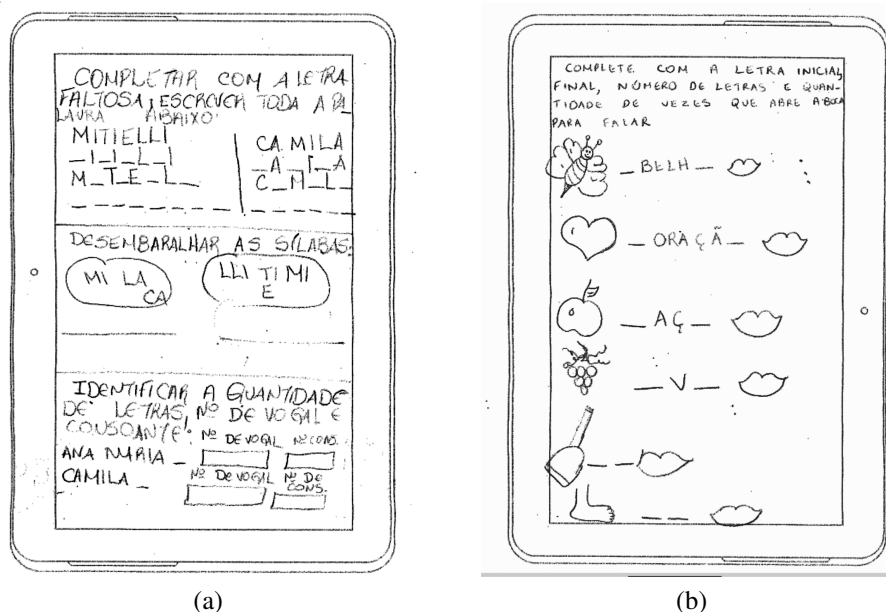 COMPLETAR COM A LETRA
FALTOSA, ESCREVER TODA A PA_
LAVRA ABAIXO:
MITIELLI
_ I _ I _ L _ I
M _ T _ E _ L _ _
_ _ _ _ _ _ _ _
CAMILA
_ A _ I _ A
C _ M _ L _
_ _ _ _ _ _
DESEMBARALHAR AS SÍLABAS:
MI LA
CA
LLI TI MI
E
IDENTIFICAR A QUANTIDADE
DE LETRAS, Nº DE VOGAL E
CONSOANTE:
Nº DE VOGAL Nº CONS.
ANA MARIA _
Nº DE VOGAL Nº DE
CONS.
CAMILA _
(a)
COMPLETE COM A LETRA INICIAL,
FINAL, NÚMERO DE LETRAS E QUAN-
TIDADE DE VEZES QUE ABRE A BOCA
PARA FALAR
_ BELH _
_ ORAÇÃ _
_ AÇ _
_ V _
_ _
_ _
(b)